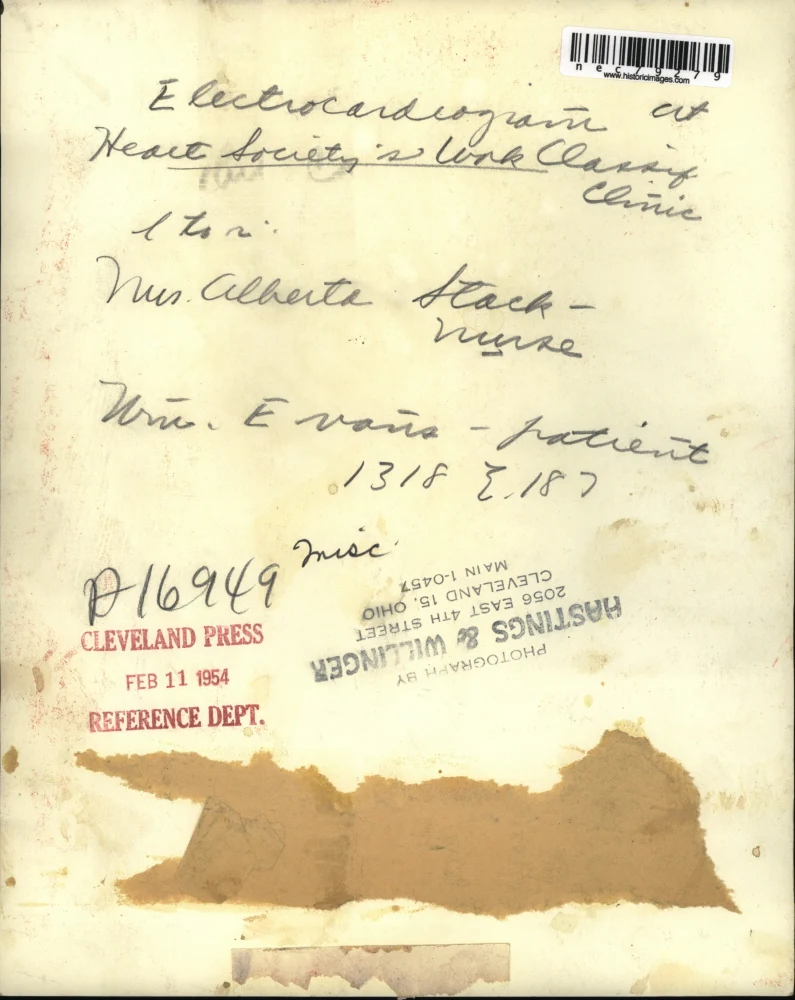 nec79279
www.historicimages.com
Electrocardiogram at
Heart Society's Work Classif
Clinic
l to r:
Mrs. Alberta Stack -
nurse
Wm. Evans - patient
1318 E. 187
misc
A16949
CLEVELAND PRESS
FEB 11 1954
REFERENCE DEPT.
PHOTOGRAPH BY
HASTINGS & WILLINGER
2056 EAST 4TH STREET
CLEVELAND 15, OHIO
MAIN 1-0457